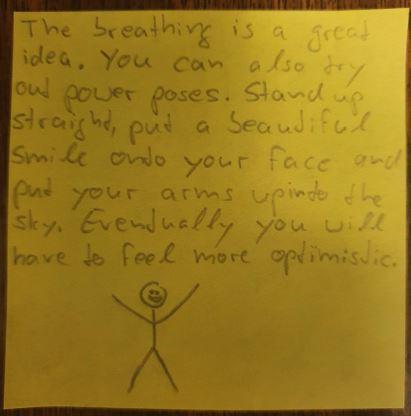 The breathing is a great
idea. You can also try
out power poses. Stand up
straight, put a beautiful
smile onto your face and
put your arms up into the
sky. Eventually you will
have to feel more optimistic.